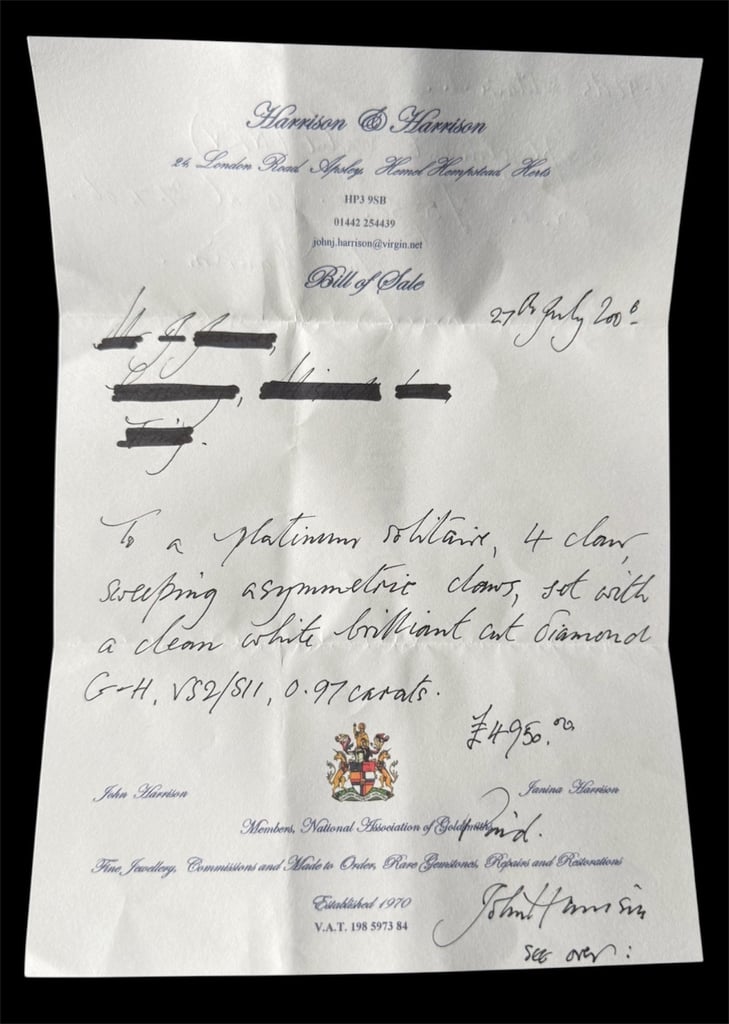 Harrison & Harrison
24, London Road Apsley, Hemel Hempstead Herts
HP3 9SB
01442 254439
johnj.harrison@virgin.net
Bill of Sale
27th July
To a platinum solitaire, 4 claw,
sweeping asymmetric claws, set with
a clean white brilliant cut diamond
G-H, VS2/SI1, 0.97 carats.
£4950.00
John Harrison
Janina Harrison
Members, National Association of Goldsmiths
Paid.
Fine Jewellery, Commissions and Made to Order, Rare Gemstones, Repairs and Restorations
Established 1970
V.A.T. 198 5973 84
John Harrison
see over: